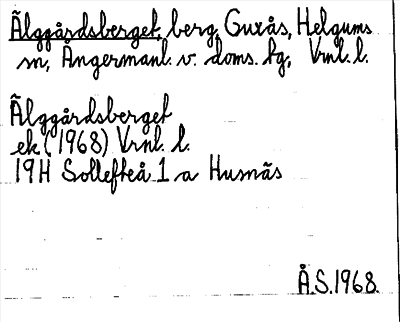 Älggårdsberget, berg, Guxås, Helgums
sn, Ångermanl. v. doms. tg, Vrnl. l.
Älggårdsberget
ek (1968) Vrnl. l.
19H Sollefteå 1 a Husnäs
Å.S. 1968.